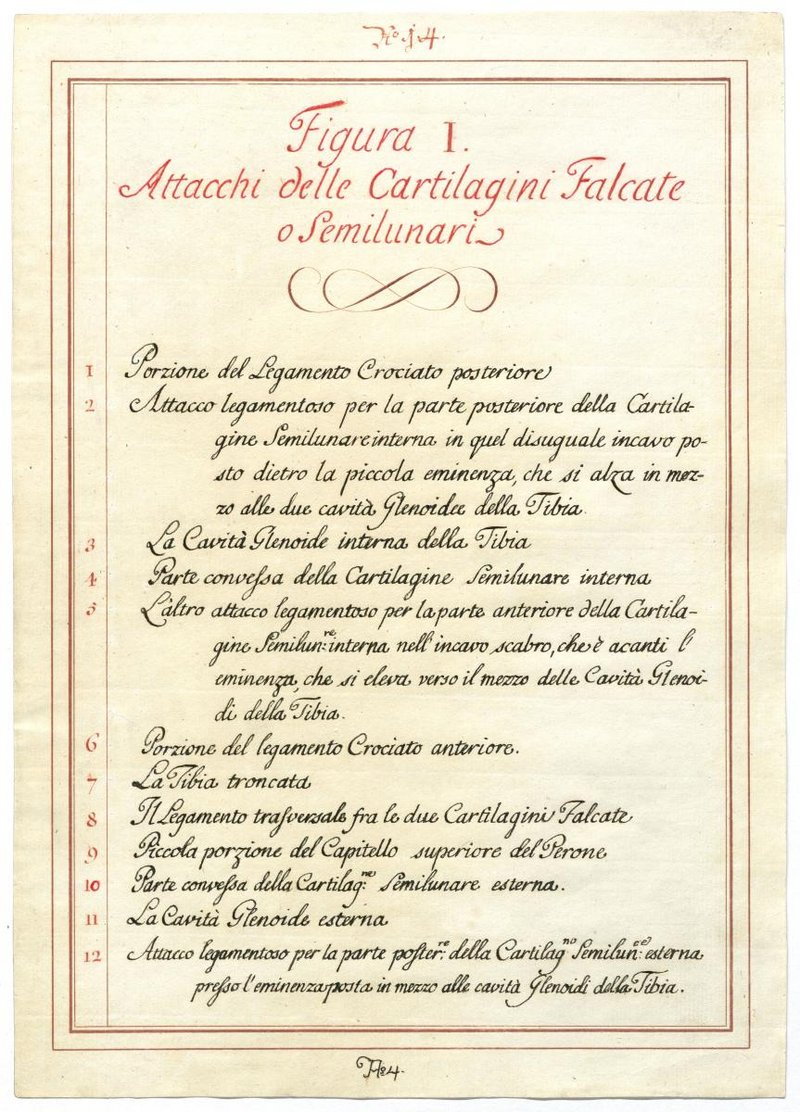 Nº 14.
Figura I.
Attacchi delle Cartilagini Falcate
o Semilunari
1 Porzione del Legamento Crociato posteriore
2 Attacco legamentoso per la parte posteriore della Cartila-
gine Semilunare interna in quel disuguale incavo po-
sto dietro la piccola eminenza, che si alza in mez-
zo alle due cavità Glenoidee della Tibia.
3 La Cavità Glenoide interna della Tibia
4 Parte convessa della Cartilagine Semilunare interna
5 L'altro attacco legamentoso per la parte anteriore della Cartila-
gine Semilun:re interna nell'incavo scabro, che è acanti l'
eminenza, che si eleva verso il mezzo delle Cavità Glenoi-
di della Tibia.
6 Porzione del legamento Crociato anteriore.
7 La Tibia troncata
8 Il Legamento trasversale fra le due Cartilagini Falcate
9 Piccola porzione del Capitello superiore del Perone
10 Parte convessa della Cartilag:ne Semilunare esterna.
11 La Cavità Glenoide esterna
12 Attacco legamentoso per la parte poster:re della Cartilag:ne Semilun:re esterna
presso l'eminenza posta in mezzo alle cavità Glenoidi della Tibia.